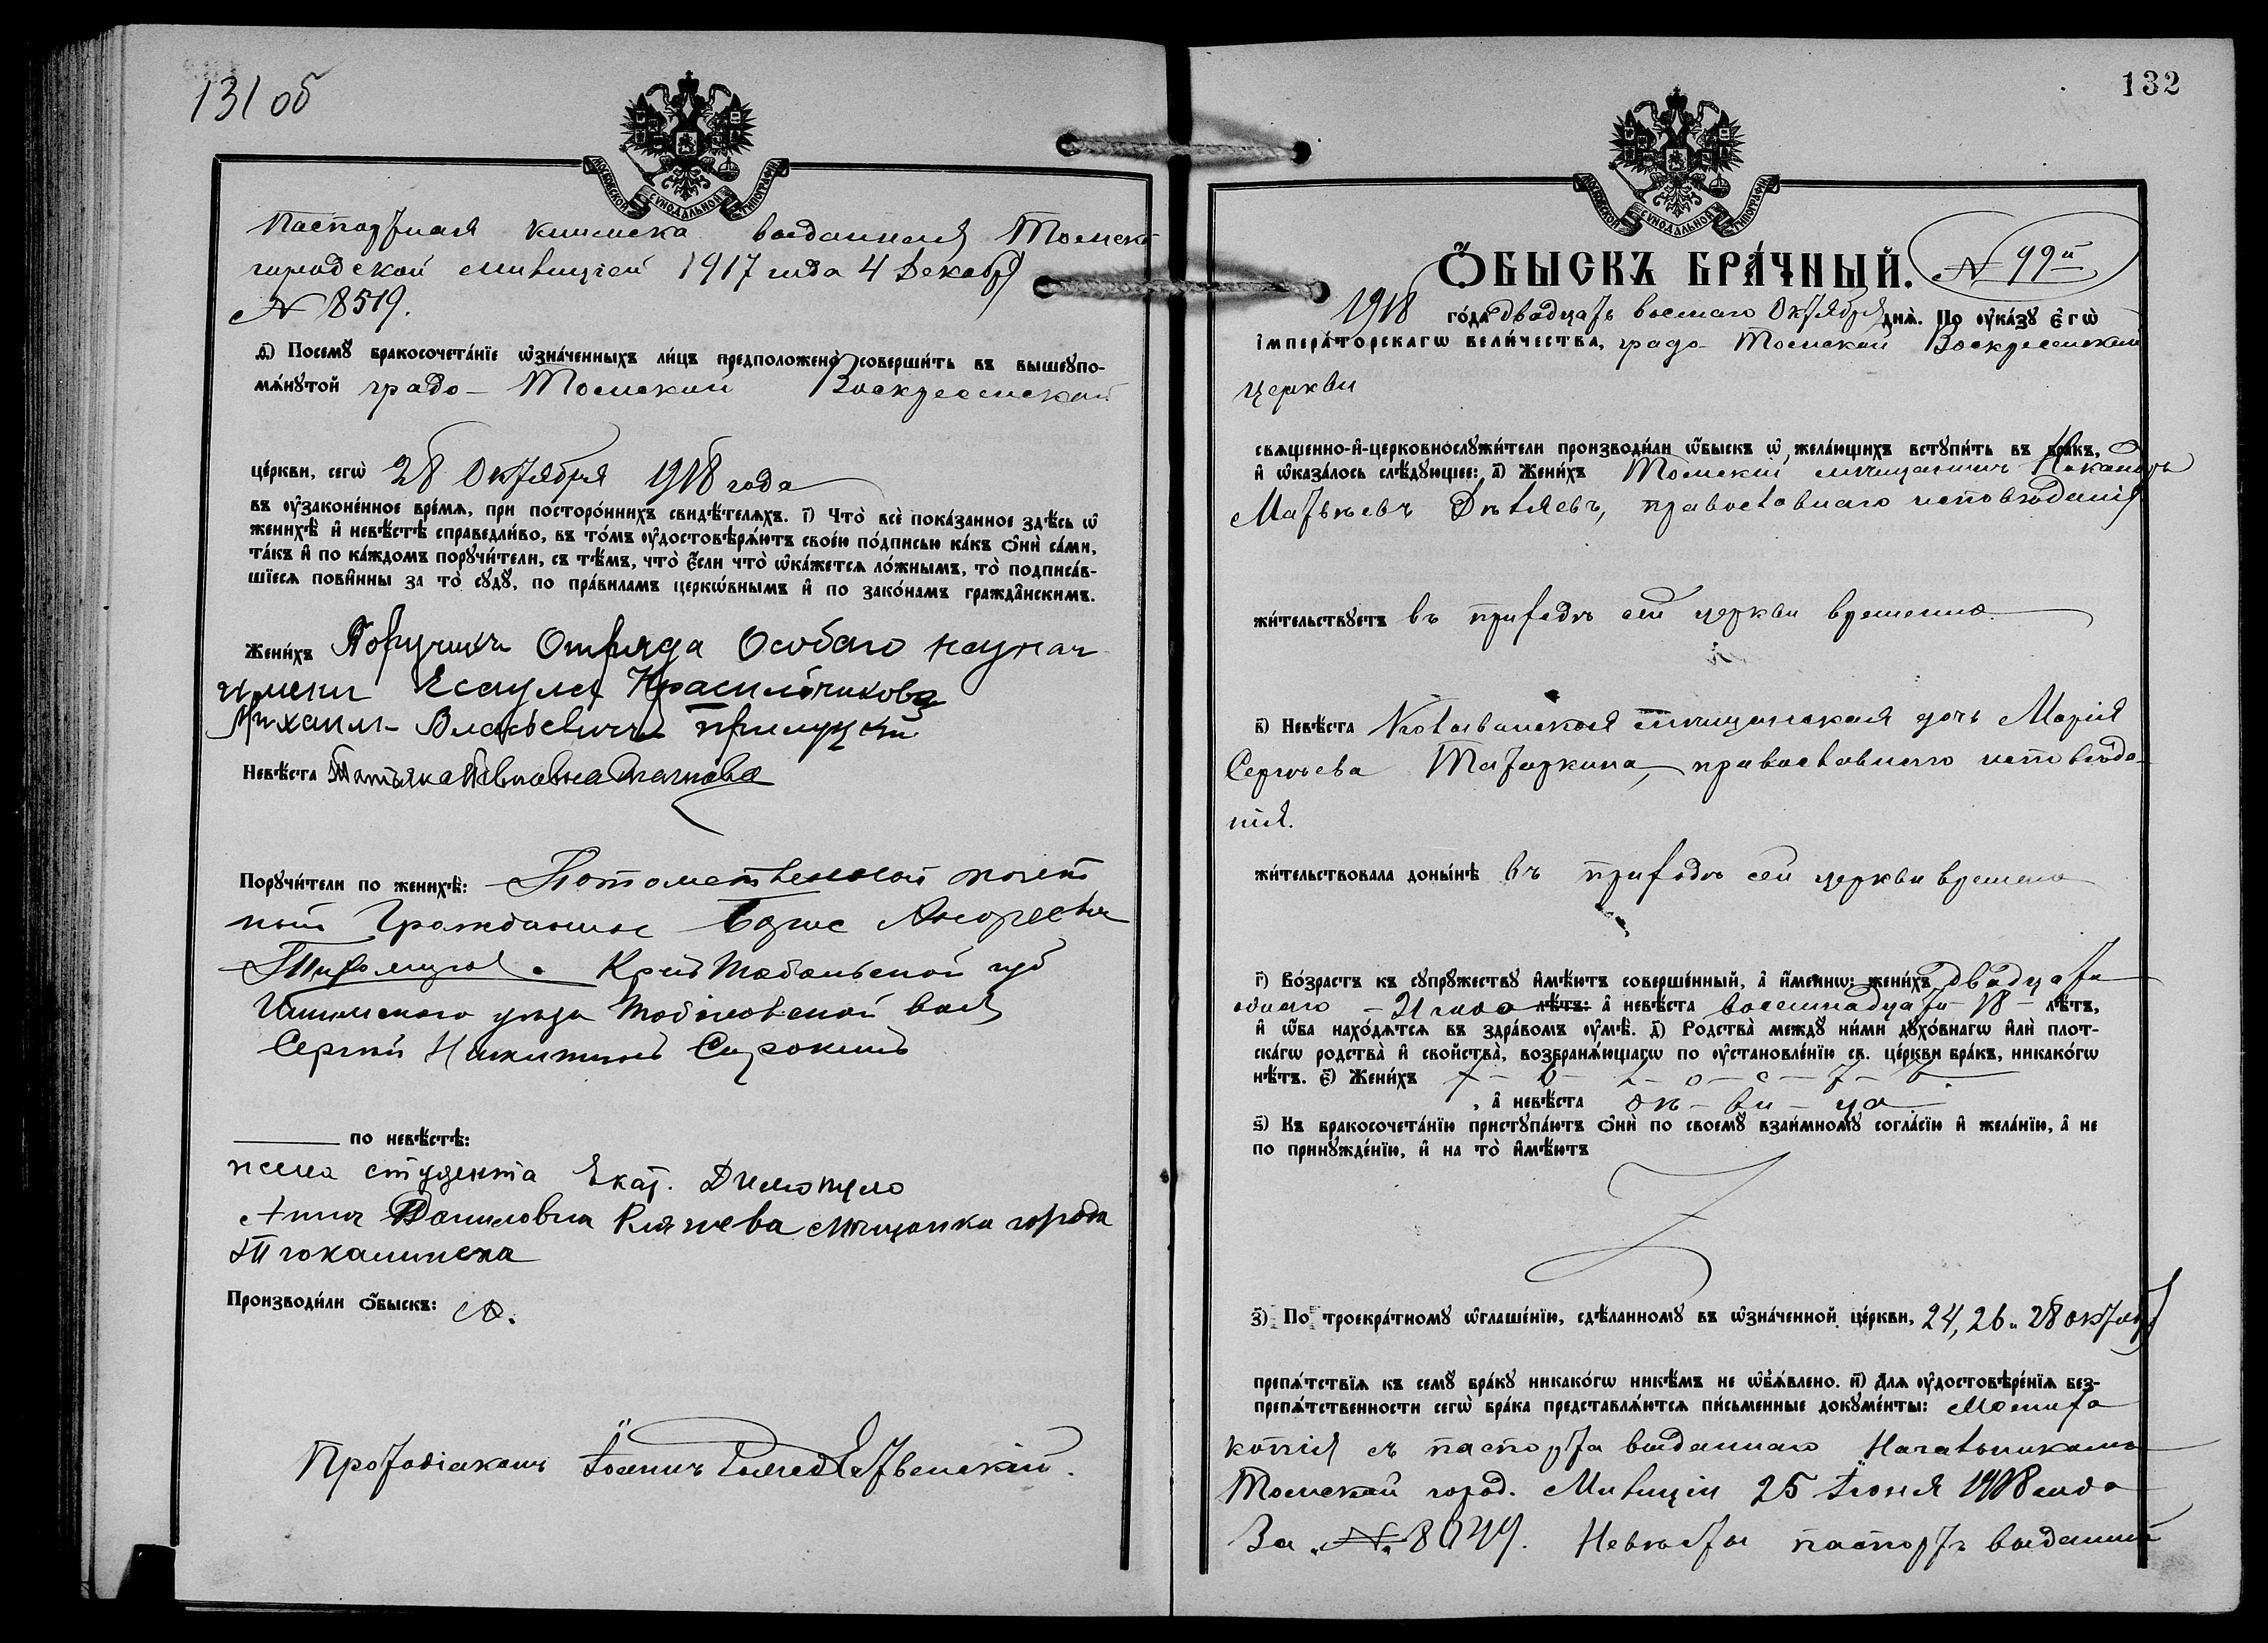 131 об
МОСКОВСКОЙ СѴНОДАЛЬНОЙ ТИПОГРАФІИ
Паспортная книжка выданная Томской
городской милиціей 1917 года 4 Декабр
№ 8519.
ѳ҃) Посемꙋ бракосочета́нїе ѡ҆зна́ченныхъ ли́цъ предположено̀ соверши́ть въ вышеꙋпо-
мѧ́нꙋтой градо-Томской Воскресенской
це́ркви, сегѡ̀ 28 Октября 1918 года
въ ᲂу҆законе́нное вре́мѧ, при посторо́ннихъ свидѣ́телѧхъ. і҃) Что̀ всѐ пока́занное здѣ́сь ѡ҆
женихѣ̀ и҆ невѣ́стѣ справедли́во, въ то́мъ ᲂу҆достовѣрѧ́ютъ свое́ю по́дписью ка́къ ѻ҆нѝ са́ми,
та́къ и҆ по ка́ждомъ порꙋчи́тели, съ тѣ́мъ, что̀ є҆́сли что̀ ѡ҆ка́жетсѧ ло́жнымъ, то̀ подписа́в-
шїесѧ пови́нны за то̀ сꙋдꙋ̀, по пра́виламъ церкѡ́внымъ и҆ по зако́намъ гражда̑нскимъ.
Жени́хъ Поручикъ Отряда Особаго назнач
имени Есаула Красильникова
Михаилъ Власьевичъ
Невѣ́ста Татьяна Павловна
Порꙋчи́тели по женихѣ̀: Потомственный почет
ный Гражданинъ Борис Андреевич
Крест Тобольской губ
Ишимскаго уезда вол
Сергей Никитинъ Сорокинъ
по невѣ́стѣ:
жена студента Екат. Димопуло
Анна Даниловна Княжева мѣщанка города
Тюкалинска
Производи́ли ѻ҆́быскъ:
Протодіаконъ Іоаннъ
132
МОСКОВСКОЙ СѴНОДАЛЬНОЙ ТИПОГРАФІИ
Ѻ҆́БЫСКЪ БРА́ЧНЫЙ. № 99й
1918 го́да двадцать восьмаго Октября днѧ̀. По ᲂу҆ка́зꙋ є҆гѡ̀
і҆мпера́торскагѡ вели́чества, градо-Томской Воскресенской
церкви
свѧще́нно-и҆-церковнослꙋжи́тели производи́ли ѡ҆́быскъ ѡ҆ жела́ющихъ встꙋпи́ть въ бра́къ,
и҆ ѡ҆каза́лось слѣ́дꙋющее: а҃) Жени́хъ Томскій мѣщанинъ Никаноръ
Матвѣевъ Дѣтяевъ, православнаго исповѣданія
жи́тельствꙋетъ въ приходѣ сей церкви временно.
в҃) Невѣ́ста Колыванская мѣщанская дочь Марія
Сергѣева Татаркина, православнаго исповѣда-
нія.
жи́тельствовала доны́нѣ въ приходѣ сей церкви временно
г҃) Во́зрастъ къ сꙋпрꙋ́жествꙋ и҆мѣ́ютъ соверше́нный, а҆ и҆́меннѡ: жени́хъ двадцати
одного - 21 года лѣ́тъ: а҆ невѣ́ста восемнадцати - 18 - лѣ́тъ,
и҆ ѡ҆́ба нахо́дѧтсѧ въ здра́вомъ ᲂу҆мѣ̀. д҃) Родства̀ междꙋ̀ ни́ми дꙋхо́внагѡ и҆лѝ плот-
ска́гѡ родства̀ и҆ сво́йства̀, возбранѧ́ющагѡ по ᲂу҆становле́нїю св. це́ркви бра́къ, никако́гѡ
нѣ́тъ. є҃) Жени́хъ х - о - л - о - с - т - ъ.
, а҆ невѣ́ста дѣ - ви - ца
ѕ҃) Къ бракосочета́нїю пристꙋпа́ютъ ѻ҆нѝ по своемꙋ̀ взаи́мномꙋ согла́сїю и҆ жела́нїю, а҆ не
по принꙋжде́нїю, и҆ на то̀ и҆мѣ́ютъ
з҃) По троекра́тномꙋ ѡ҆глаше́нїю, сдѣ́ланномꙋ въ ѡ҆зна́ченной це́ркви, 24, 26 и 28 октября
препѧ́тствїѧ къ семꙋ̀ бра́кꙋ никако́гѡ никѣ́мъ не ѡ҆б̾ѧ́влено. и҃) Длѧ ᲂу҆достовѣре́нїѧ без-
препѧ́тственности сегѡ̀ бра́ка представлѧ́ютсѧ пи́сьменные докꙋме́нты: Жениха
копія съ паспорта выданнаго Начальникомъ
Томской город. Милиціи 25 Іюня 1918 года
За №. Невѣсты паспортъ выданный